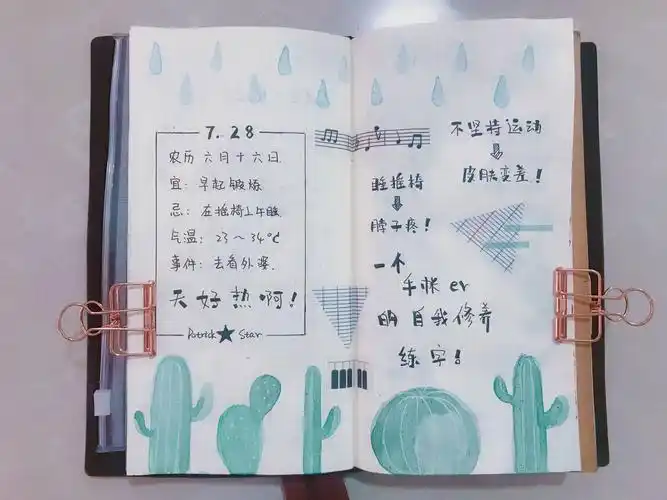 7.28
农历 六月十六日.
宜: 早起锻炼
忌: 在摇椅上午睡.
气温: 23~34℃
事件: 去看外婆.
天好热啊!
Patrick Star
不坚持运动
皮肤变差!
睡摇椅
脖子疼!
一个
手帐er
的自我修养
练字!